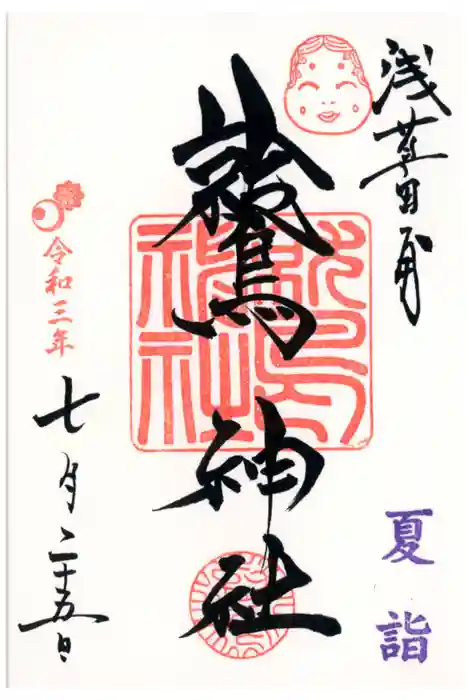 浅草田甫
夏詣
鷲神社
令和三年
七月二十五日